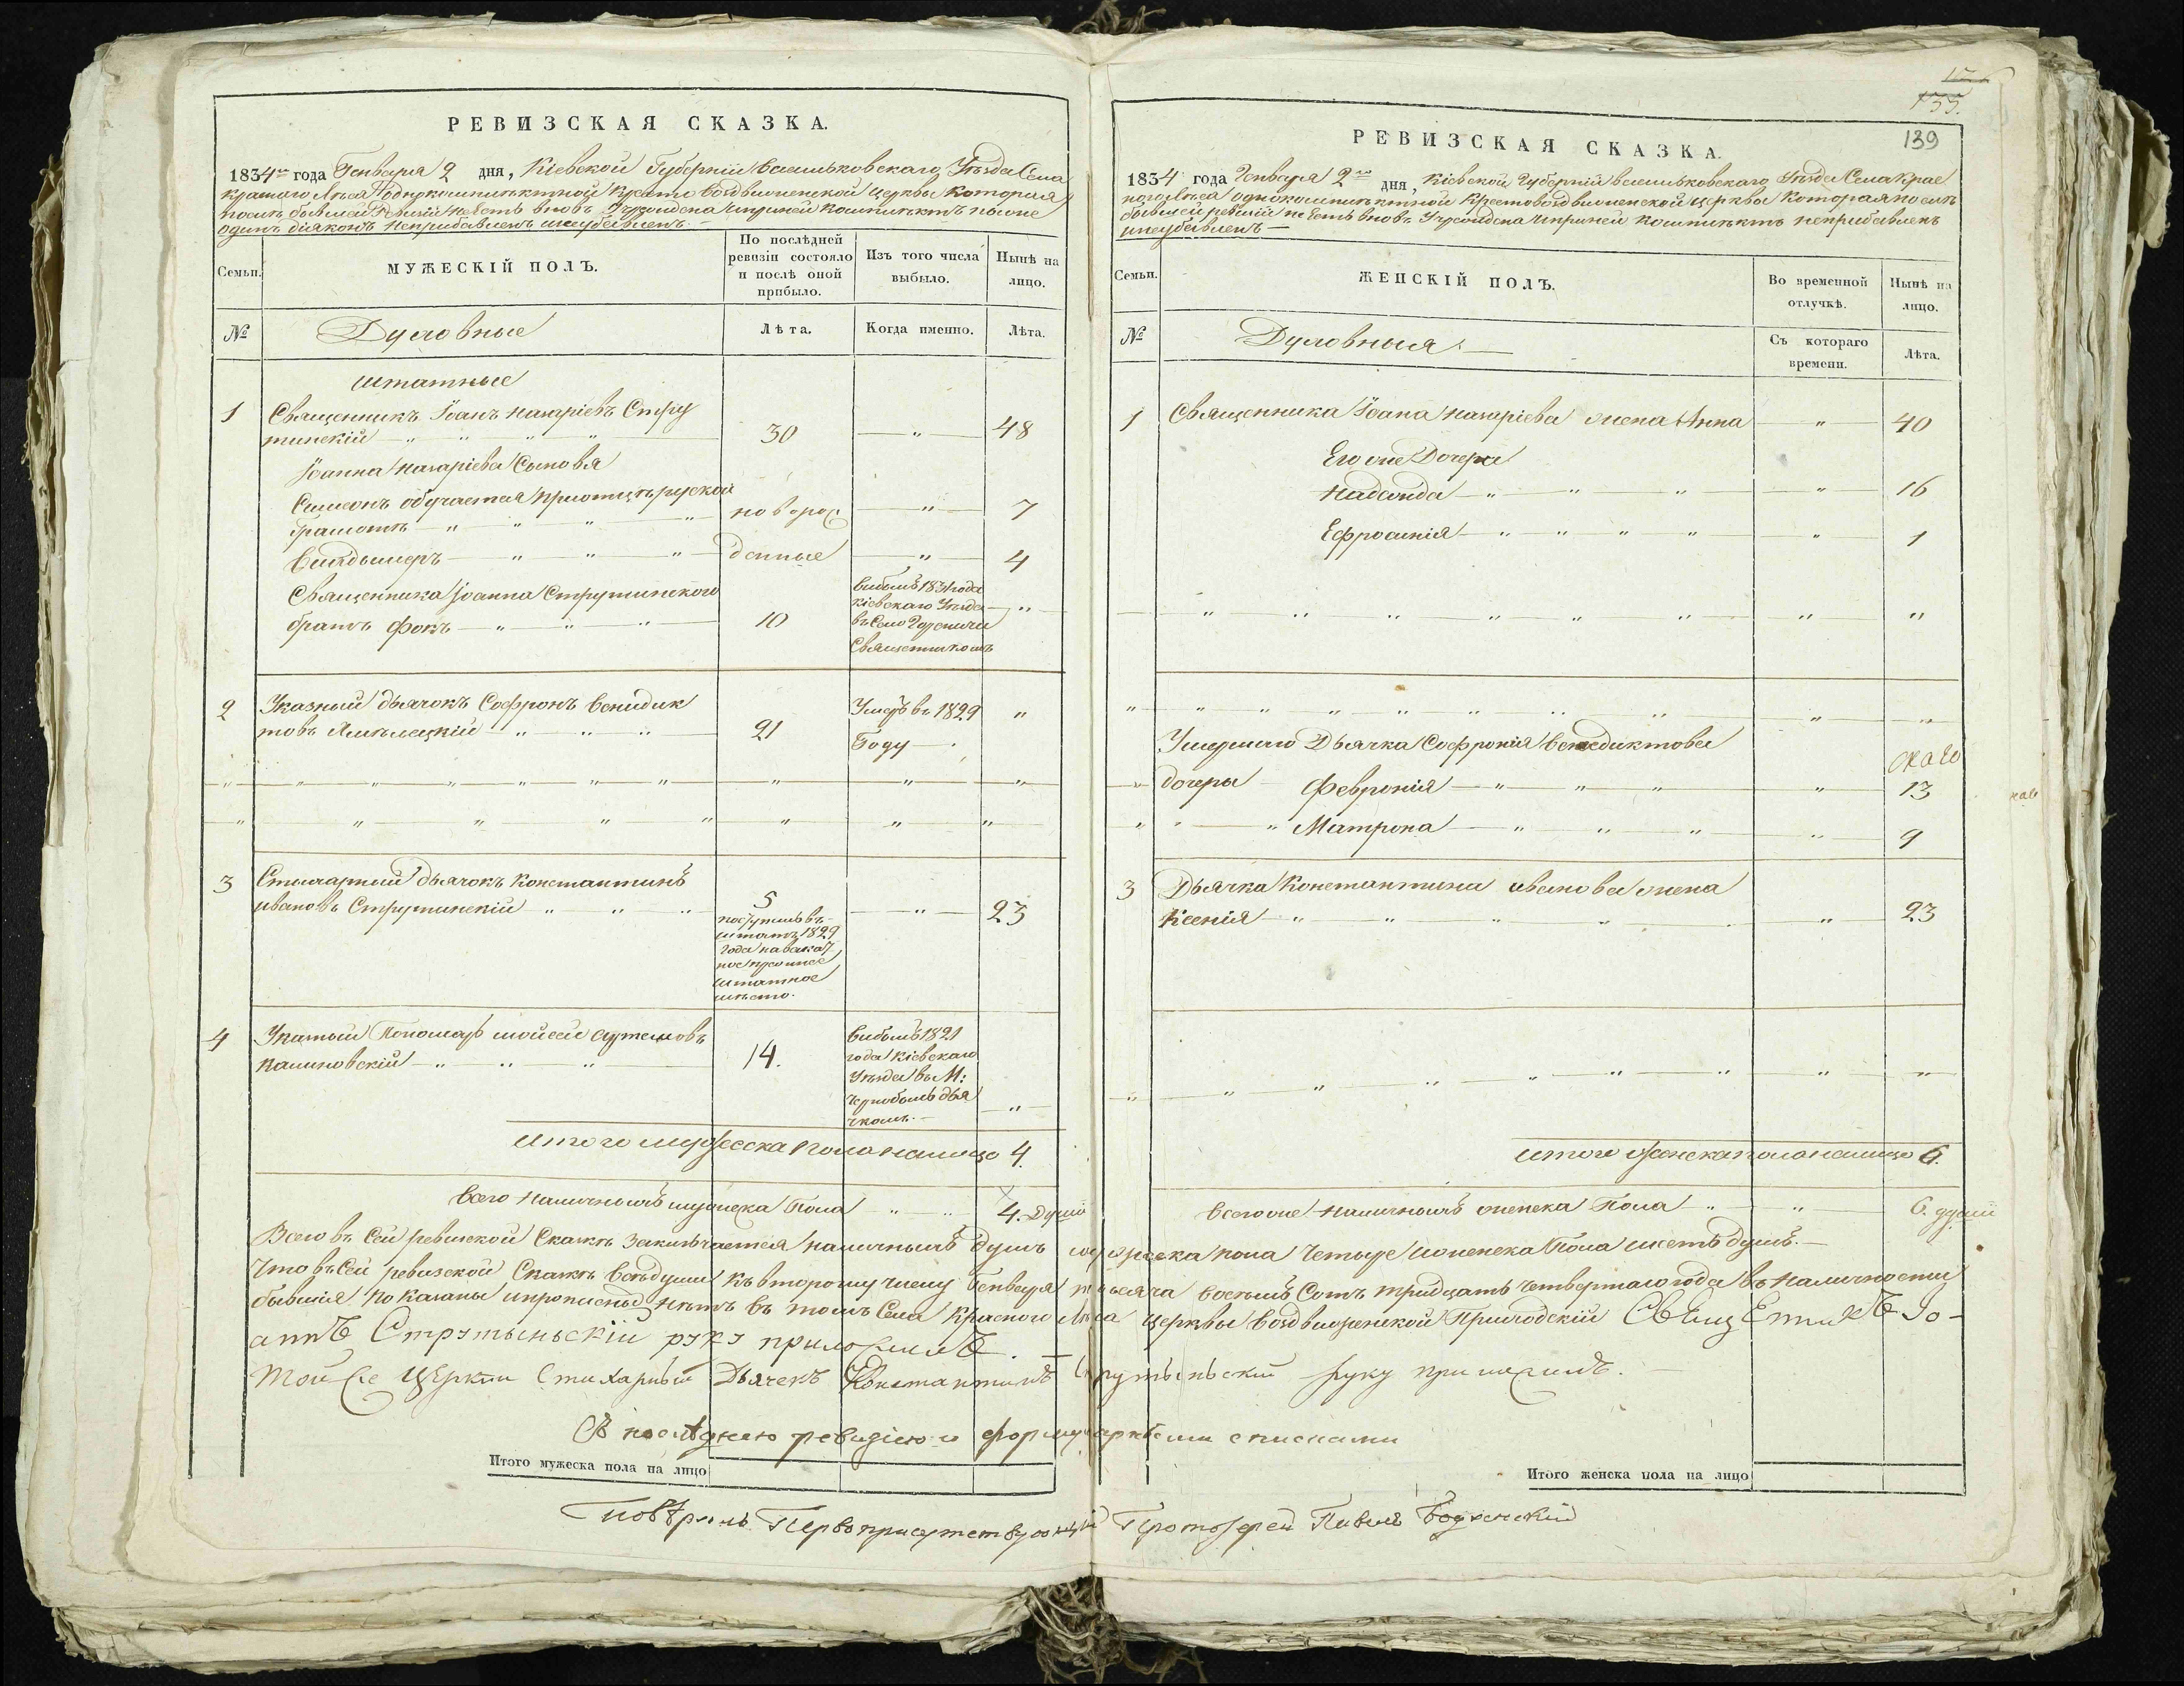 РЕВИЗСКАЯ СКАЗКА.
1834го года Генваря 2 дня, Кіевской Губерніи Васильковскаго Уѣзда Села
Красного Лѣса Однокомплектной Кресто воздвиженской церквы которая
послѣ бывшей Ревизіи не есть вновь Учреждена и при ней комплектъ
одинъ діяконъ неприбавленъ и неубавленъ.
Семьи.
МУЖЕСКІЙ ПОЛЪ.
По послѣдней
ревизіи состояло
и послѣ оной
прибыло.
Изъ того числа
выбыло.
Нынѣ на
лицо.
№
Духовные
Лѣта.
Когда именно.
Лѣта.
штатные
1 Священникъ Іоанъ Назаріевъ Стру
тинскій 30 48
Іоанна Назаріева Сыновя
Симеонъ обучается при отцѣ руской
Грамотѣ новорож 7
Владымеръ денные 4
Священника Іоанна Струтинского
братъ Фокъ 10
выбылъ 1831 года
кіевскаго Уѣзда
въ Село
Священникомъ
2 Указный дьячокъ Софронъ Венидик
товъ 21
Умеръ въ 1829
Году
3 Стихарный дьячокъ Константинъ
ивановъ Струтинскій 5 23
поступилъ въ
штатъ 1829
года на
штатное
мѣсто.
4 Указный Пономарь Мойсей Артемовъ
Калиновскій 14.
выбылъ 1821
года кіевскаго
Уѣзда въ М:
Чернобыль дья
чкомъ.
Итого мужеска пола налицо 4.
Всего наличныхъ мужеска Пола 4. Души
РЕВИЗСКАЯ СКАЗКА.
139
1834 года Генваря 2го дня, Кіевской Губерній Васильковскаго Уѣзда Села Крас
ного Лѣса однокомплектной Крестовоздвиженской церквы Которая послѣ
бывшей ревизіи не есть вновь Учреждена и при ней комплектъ неприбавленъ
и неубавленъ
Семьи.
ЖЕНСКІЙ ПОЛЪ.
Во временной
отлучкѣ.
Нынѣ на
лицо.
№
Духовныя
Съ котораго
времени.
Лѣта.
1 Священника Іоана Назаріева жена Анна 40
Его же Дочери
Надежда 16
Ефросинія 1
Умершаго Дьячка Софронія Венедиктова
дочеры Февронія 13
Матрона 9
3 Дьячка Константина иванова жена
Ксенія 23
Итого женска пола налицо 6.
Всего же наличныхъ женска Пола 6. душъ
Всего въ сей ревизской Сказкѣ Заключается наличныхъ душъ мужеска пола Четыре и женска Пола шесть душъ.
Что въ Сей ревизской Сказкѣ Всѣ души къ второму числу Генваря тысяча восемъ Сотъ тридцать четвертаго года въ наличности
бывшія показаны и прописныхъ нѣтъ въ томъ Села Красного Лѣса церквы Воздвиженской Приходскій Священникъ Іо-
аннъ Струтыньскій руку приложилъ.
Той же Церкви Стихарный Дьячекъ Константинъ Струтыньский руку приложилъ.
С послѣднею ревизіею и формулярными списками
Итого мужеска пола на лицо
Итого женска пола на лицо
повѣрялъ Первоприсутствующій Протоіерей Павелъ